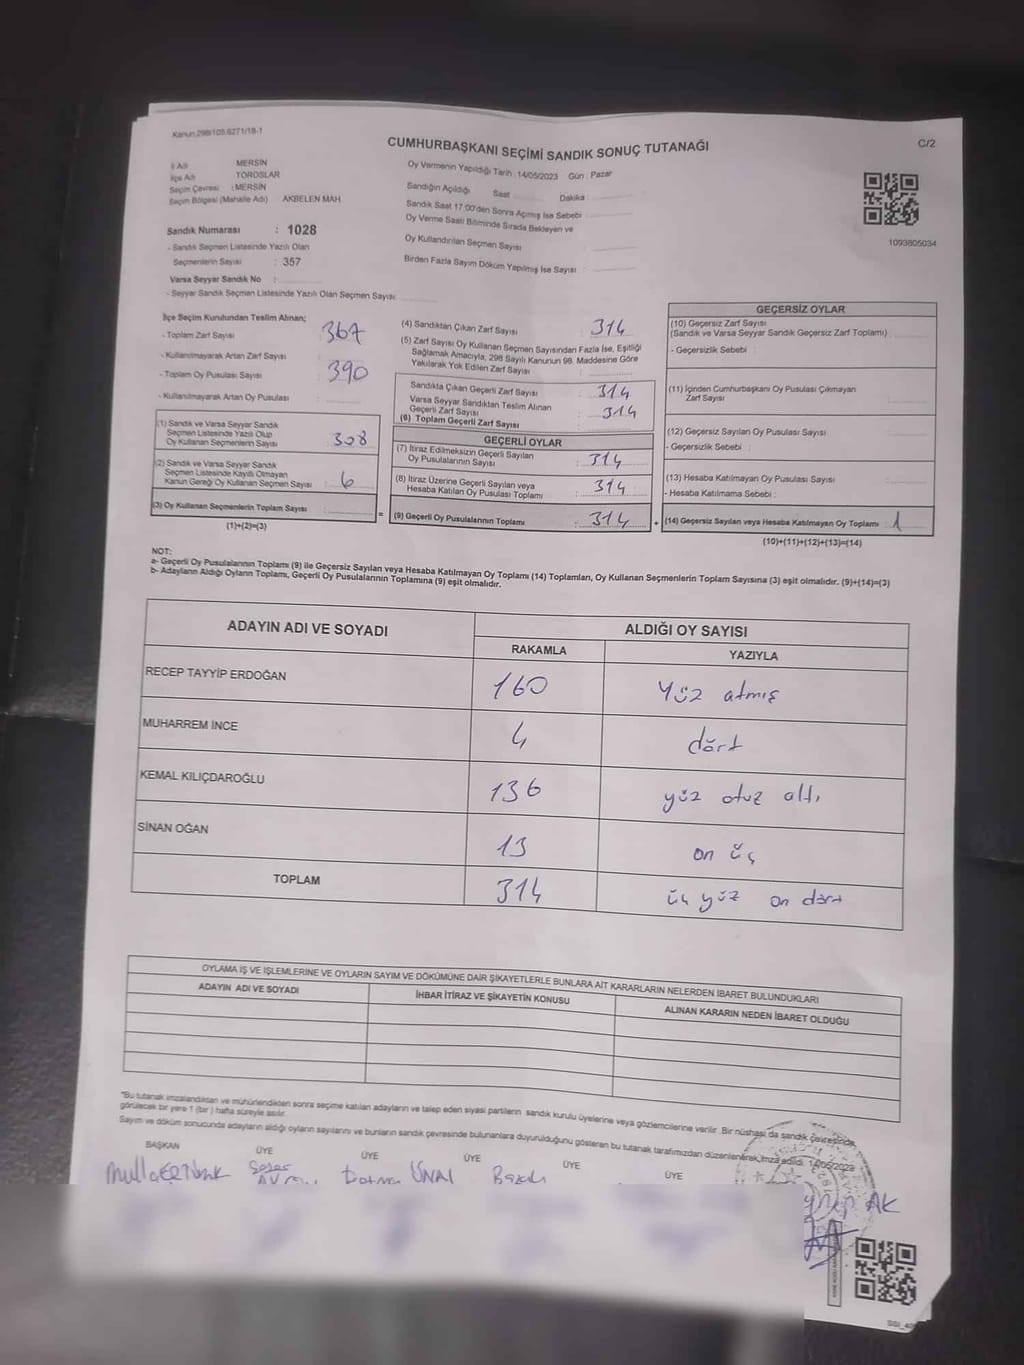 Kanun 298/103,6271/18-1
CUMHURBAŞKANI SEÇİMİ SANDIK SONUÇ TUTANAĞI
C/2
İl Adı MERSİN
İlçe Adı TOROSLAR
Seçim Çevresi : MERSİN
Seçim Bölgesi (Mahalle Adı) AKBELEN MAH
Sandık Numarası : 1028
- Sandık Seçmen Listesinde Yazılı Olan
Seçmenlerin Sayısı : 357
Varsa Seyyar Sandık No :
- Seyyar Sandık Seçmen Listesinde Yazılı Olan Seçmen Sayısı:
Oy Vermenin Yapıldığı Tarih : 14/05/2023 Gün : Pazar
Sandığın Açıldığı Saat Dakika :
Sandık Saat 17:00'den Sonra Açılmış İse Sebebi :
Oy Verme Saati Bitiminde Sırada Bekleyen ve
Oy Kullandırılan Seçmen Sayısı :
Birden Fazla Sayım Döküm Yapılmış İse Sayısı :
1093805034
İlçe Seçim Kurulundan Teslim Alınan;
- Toplam Zarf Sayısı : 367
- Kullanılmayarak Artan Zarf Sayısı :
- Toplam Oy Pusulası Sayısı : 390
- Kullanılmayarak Artan Oy Pusulası :
(1) Sandık ve Varsa Seyyar Sandık
Seçmen Listesinde Yazılı Olup
Oy Kullanan Seçmenlerin Sayısı : 308
(2) Sandık ve Varsa Seyyar Sandık
Seçmen Listesinde Kayıtlı Olmayan
Kanun Gereği Oy Kullanan Seçmen Sayısı : 6
(3) Oy Kullanan Seçmenlerin Toplam Sayısı :
(1)+(2)=(3)
(4) Sandıktan Çıkan Zarf Sayısı : 314
(5) Zarf Sayısı Oy Kullanan Seçmen Sayısından Fazla İse, Eşitliği
Sağlamak Amacıyla, 298 Sayılı Kanunun 98. Maddesine Göre
Yakılarak Yok Edilen Zarf Sayısı :
Sandıkta Çıkan Geçerli Zarf Sayısı : 314
Varsa Seyyar Sandıktan Teslim Alınan
Geçerli Zarf Sayısı : 314
(6) Toplam Geçerli Zarf Sayısı
GEÇERLİ OYLAR
(7) İtiraz Edilmeksizin Geçerli Sayılan
Oy Pusulalarının Sayısı : 314
(8) İtiraz Üzerine Geçerli Sayılan veya
Hesaba Katılan Oy Pusulası Toplamı : 314
=
(9) Geçerli Oy Pusulalarının Toplamı : 314
+
GEÇERSİZ OYLAR
(10) Geçersiz Zarf Sayısı
(Sandık ve Varsa Seyyar Sandık Geçersiz Zarf Toplamı) :
- Geçersizlik Sebebi :
(11) İçinden Cumhurbaşkanı Oy Pusulası Çıkmayan
Zarf Sayısı :
(12) Geçersiz Sayılan Oy Pusulası Sayısı :
- Geçersizlik Sebebi :
(13) Hesaba Katılmayan Oy Pusulası Sayısı :
- Hesaba Katılmama Sebebi :
(14) Geçersiz Sayılan veya Hesaba Katılmayan Oy Toplamı : 1
(10)+(11)+(12)+(13)=(14)
NOT:
a- Geçerli Oy Pusulalarının Toplamı (9) ile Geçersiz Sayılan veya Hesaba Katılmayan Oy Toplamı (14) Toplamları, Oy Kullanan Seçmenlerin Toplam Sayısına (3) eşit olmalıdır. (9)+(14)=(3)
b- Adayların Aldığı Oyların Toplamı, Geçerli Oy Pusulalarının Toplamına (9) eşit olmalıdır.
ADAYIN ADI VE SOYADI ALDIĞI OY SAYISI
RAKAMLA YAZIYLA
RECEP TAYYİP ERDOĞAN 160 Yüz atmış
MUHARREM İNCE 4 dört
KEMAL KILIÇDAROĞLU 136 yüz otuz altı
SİNAN OĞAN 13 on üç
TOPLAM 314 üç yüz on dört
OYLAMA İŞ VE İŞLEMLERİNE VE OYLARIN SAYIM VE DÖKÜMÜNE DAİR ŞİKAYETLERLE BUNLARA AİT KARARLARIN NELERDEN İBARET BULUNDUKLARI
ADAYIN ADI VE SOYADI İHBAR İTİRAZ VE ŞİKAYETİN KONUSU ALINAN KARARIN NEDEN İBARET OLDUĞU
*Bu tutanak imzalandıktan ve mühürlendikten sonra seçime katılan adayların ve talep eden siyasi partilerin sandık kurulu üyelerine veya gözlemcilerine verilir. Bir nüshası da sandık çevresinde,
görülecek bir yere 1 (bir) hafta süreyle asılır.
Sayım ve döküm sonucunda adayların aldığı oyların sayılarını ve bunların sandık çevresinde bulunanlara duyurulduğunu gösteren bu tutanak tarafımızdan düzenlenerek, imza edildi. 14/05/2023
BAŞKAN ÜYE ÜYE ÜYE ÜYE ÜYE
ÜNAL
AK